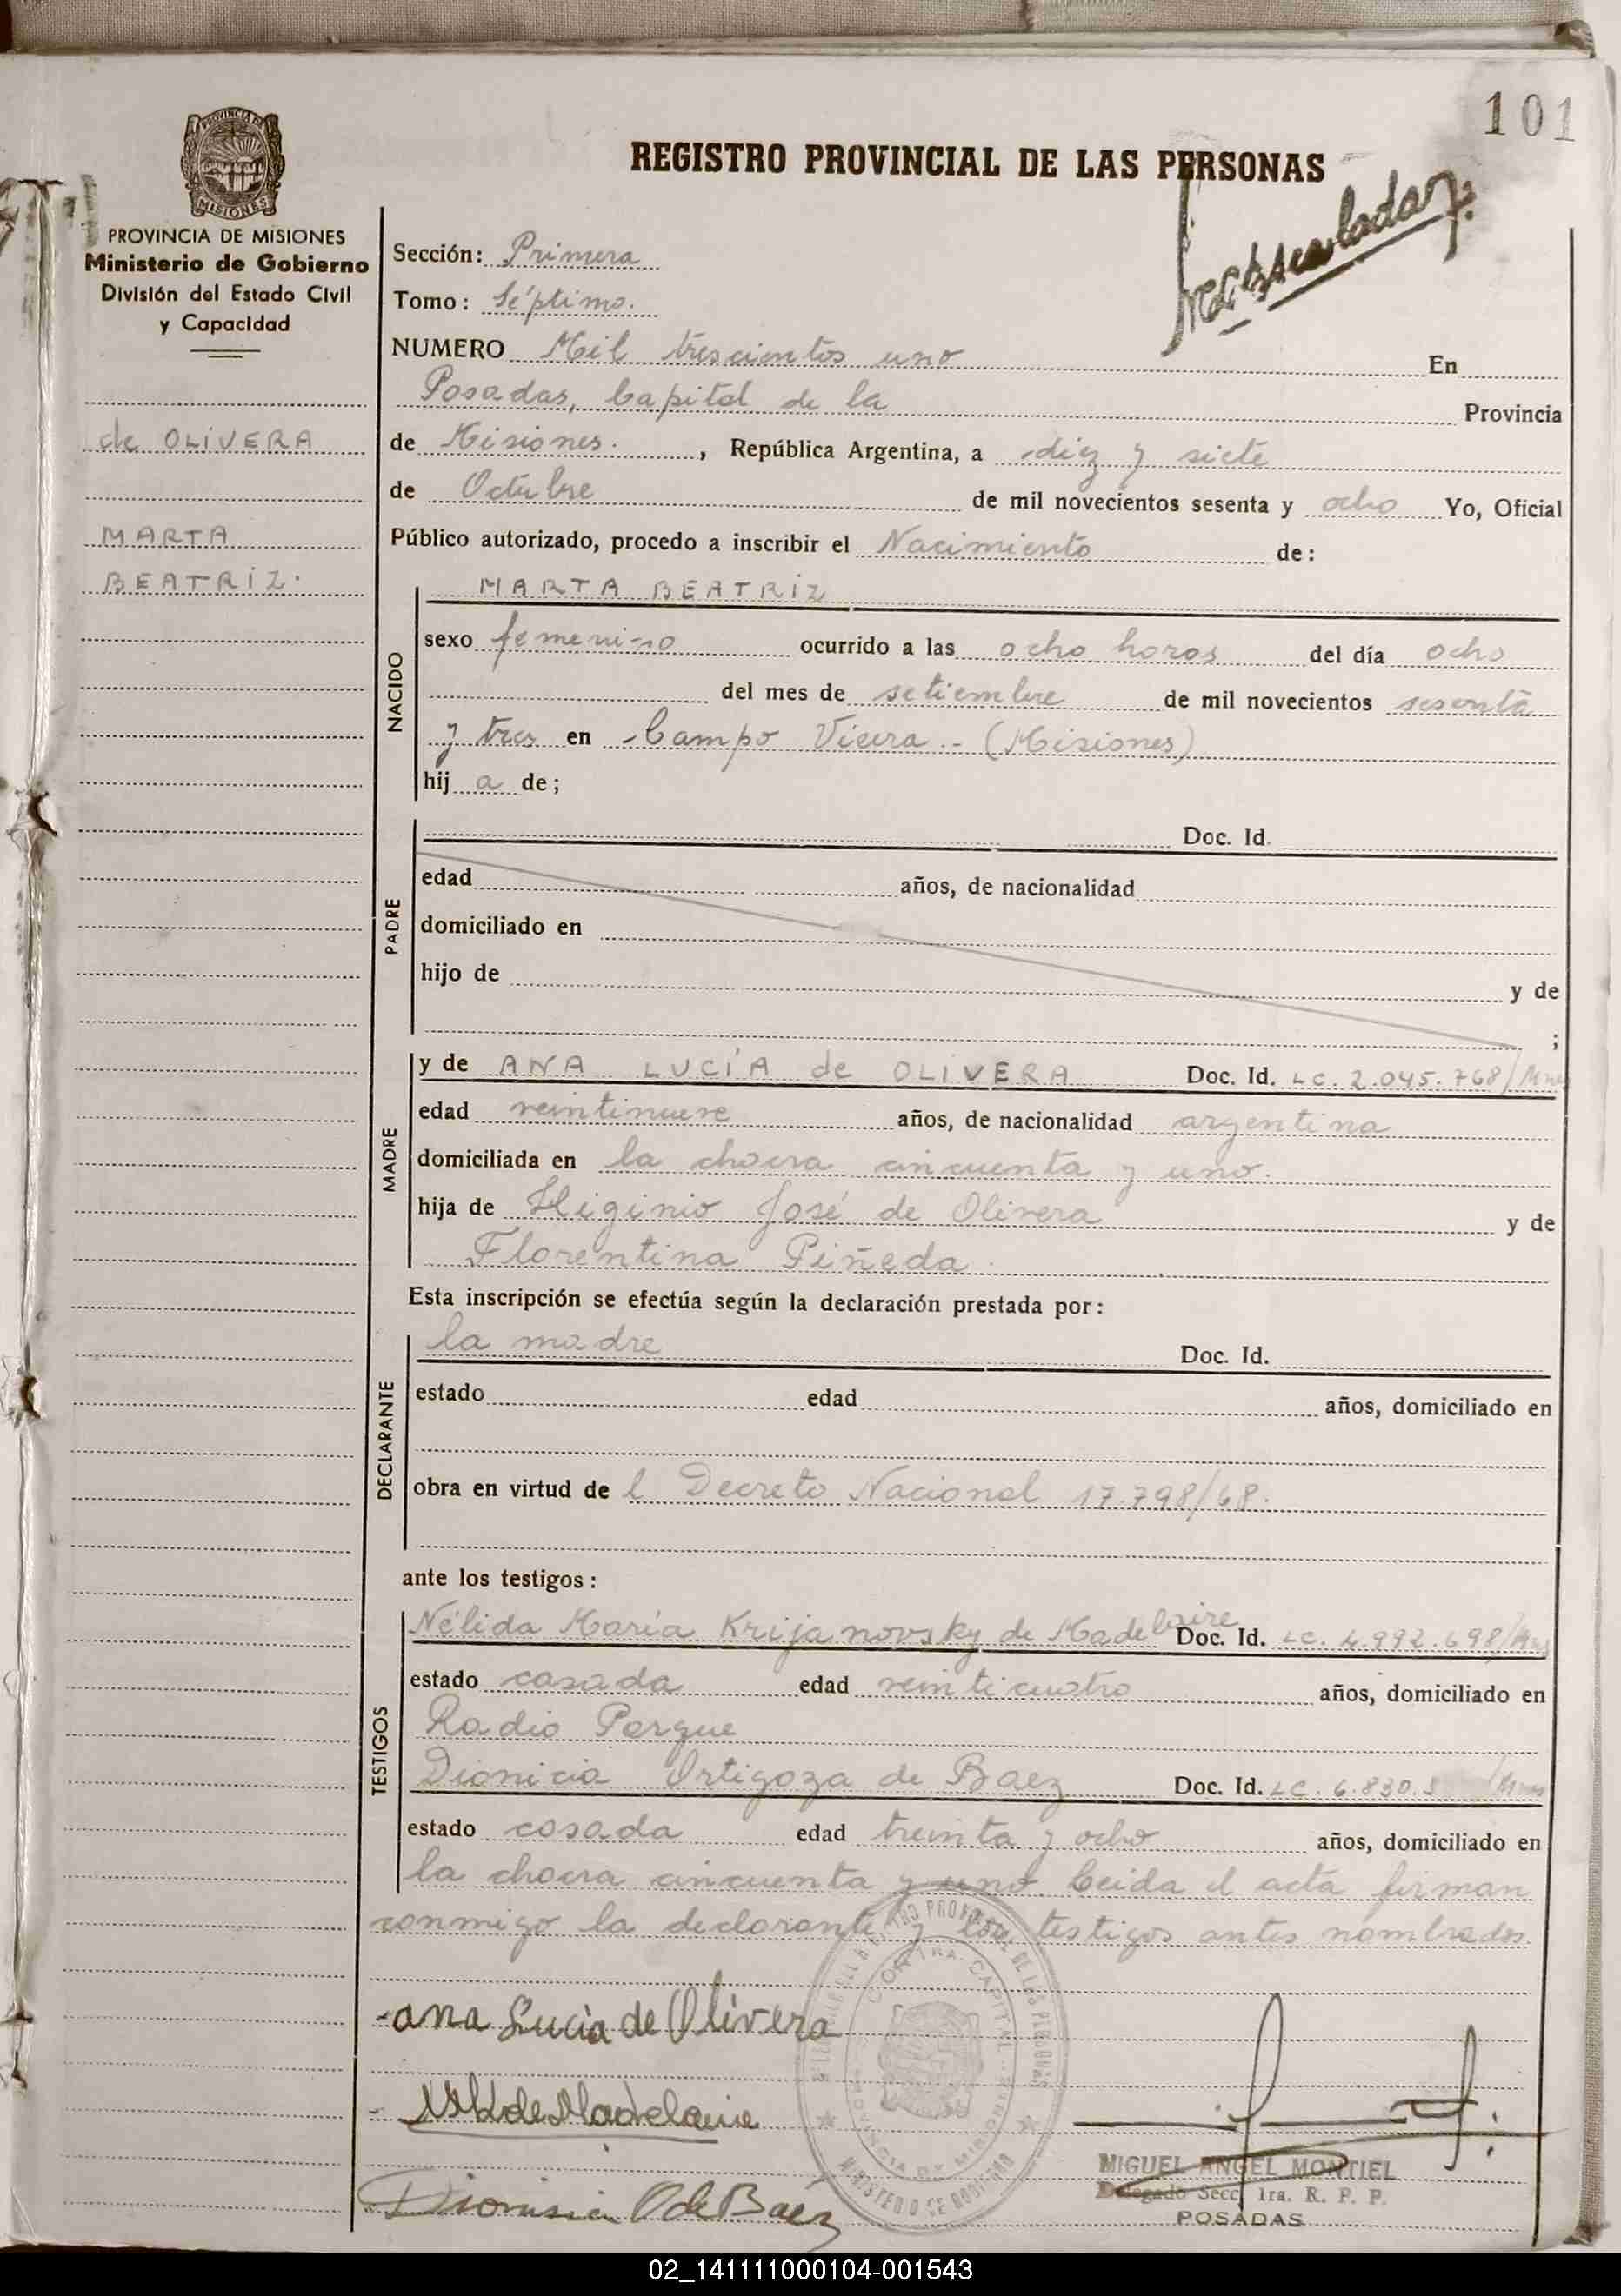 101
REGISTRO PROVINCIAL DE LAS PERSONAS
PROVINCIA DE MISIONES
Ministerio de Gobierno
División del Estado Civil
y Capacidad
de OLIVERA
MARTA
BEATRIZ.
Sección: Primera
Tomo: Séptimo.
NUMERO Mil trescientos uno En
Posadas, Capital de la Provincia
de Misiones. , República Argentina, a diez y siete
de Octubre de mil novecientos sesenta y ocho Yo, Oficial
Público autorizado, procedo a inscribir el Nacimiento de:
NACIDO
MARTA BEATRIZ
sexo femenino ocurrido a las ocho horas del día ocho
del mes de setiembre de mil novecientos sesenta
y tres en Campo Viera.- (Misiones)
hij a de;
PADRE
Doc. Id.
edad años, de nacionalidad
domiciliado en
hijo de y de
;
MADRE
y de ANA LUCÍA de OLIVERA Doc. Id. LC. 2.045.768/Mnes
edad veintinueve años, de nacionalidad argentina
domiciliada en la chacra cincuenta y uno.
hija de Higinio José de Olivera y de
Florentina Piñeda.
Esta inscripción se efectúa según la declaración prestada por:
DECLARANTE
la madre Doc. Id.
estado edad años, domiciliado en
obra en virtud de l Decreto Nacional 17.798/68.
ante los testigos:
TESTIGOS
Nélida María Krijanovsky de Madelaire Doc. Id. LC. 4.992.698/Mnes
estado casada edad veinticuatro años, domiciliado en
Radio Parque
Dionicia Ortigoza de Baez Doc. Id. LC. 6.830.
estado casada edad treinta y ocho años, domiciliado en
la chacra cincuenta y uno. Leida el acta firman
conmigo la declarante y los testigos antes nombrados.
-ana Lucia de Olivera
de Madelaire
Dionisia O de Baéz
MIGUEL ANGEL MONTIEL
Delegado Secc. 1ra. R. P. P.
POSADAS
02_141111000104-001543